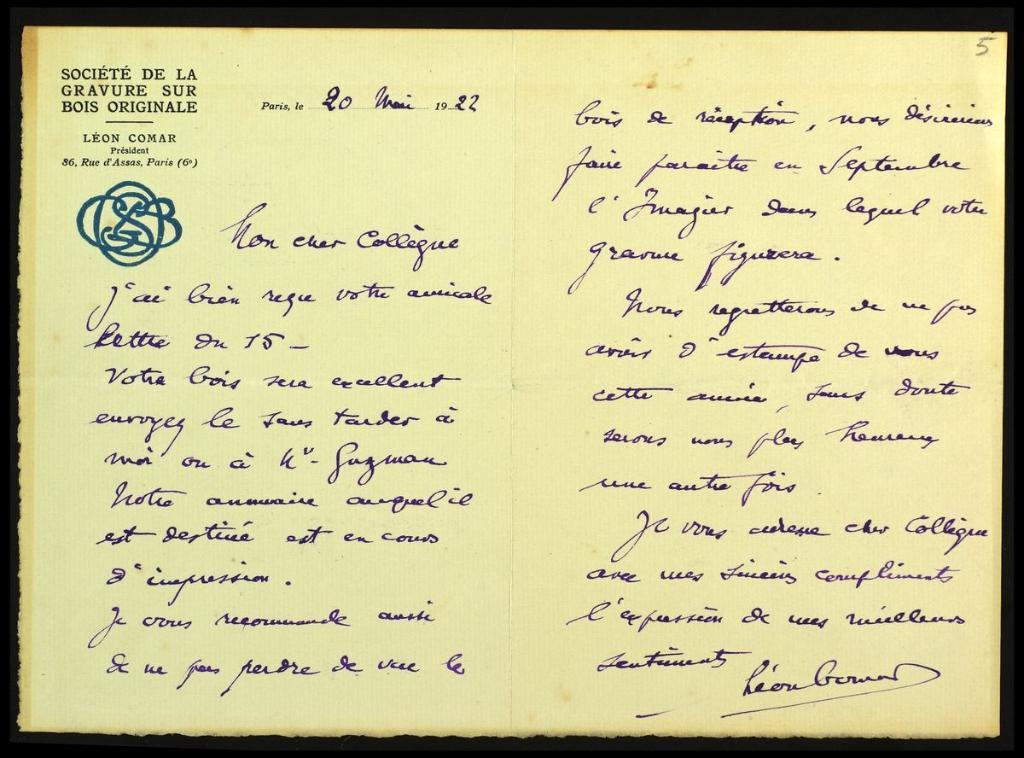 SOCIÉTÉ DE LA
GRAVURE SUR
BOIS ORIGINALE
LÉON COMAR
Président
86, Rue d'Assas, Paris (6e)
Paris, le 20 Mai 1922
Mon cher Collègue
J'ai bien reçu votre amicale
lettre du 15 -
Votre bois sera excellent
envoyez le sans tarder à
moi ou à Mr - Guzman
Notre annuaire auquel il
est destiné est en cours
d'impression.
Je vous recommande aussi
de ne pas perdre de vue le
5
bois de réception, nous désirerions
faire paraître en Septembre
l'Imagier dans lequel votre
gravure figurera.
Nous regretterons de ne pas
avoir d'estampe de vous
cette année, sans doute
serons nous plus heureux
une autre fois.
Je vous adresse cher Collègue
avec mes sincères compliments
l'expression de mes meilleurs
sentiments
Léon Comar